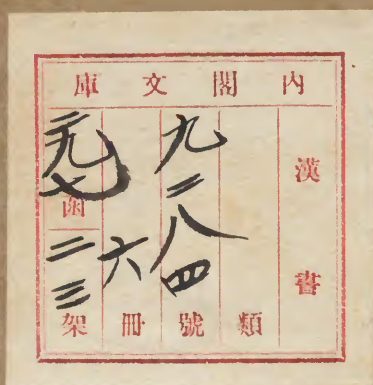 內閣文庫
漢書
類
九二八四號
六冊
二九七函
二三架